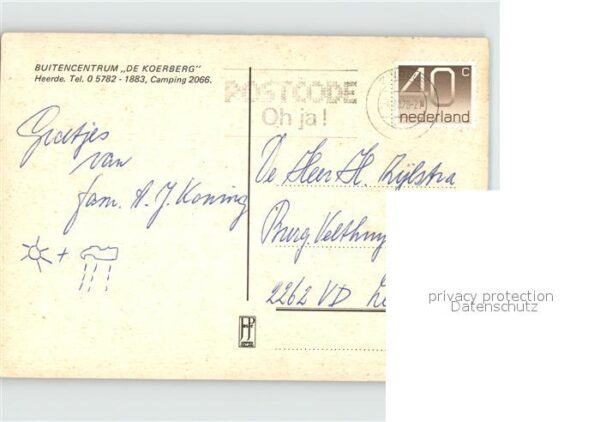 BUITENCENTRUM „DE KOERBERG"
Heerde. Tel. 0 5782 - 1883, Camping 2066.
POSTCODE
Oh ja!
40 c
nederland
Groetjes
van
fam. A. J. Koning
De Heer H. Zijlstra
Burg. Velthuy
2262 VD
privacy protection
Datenschutz